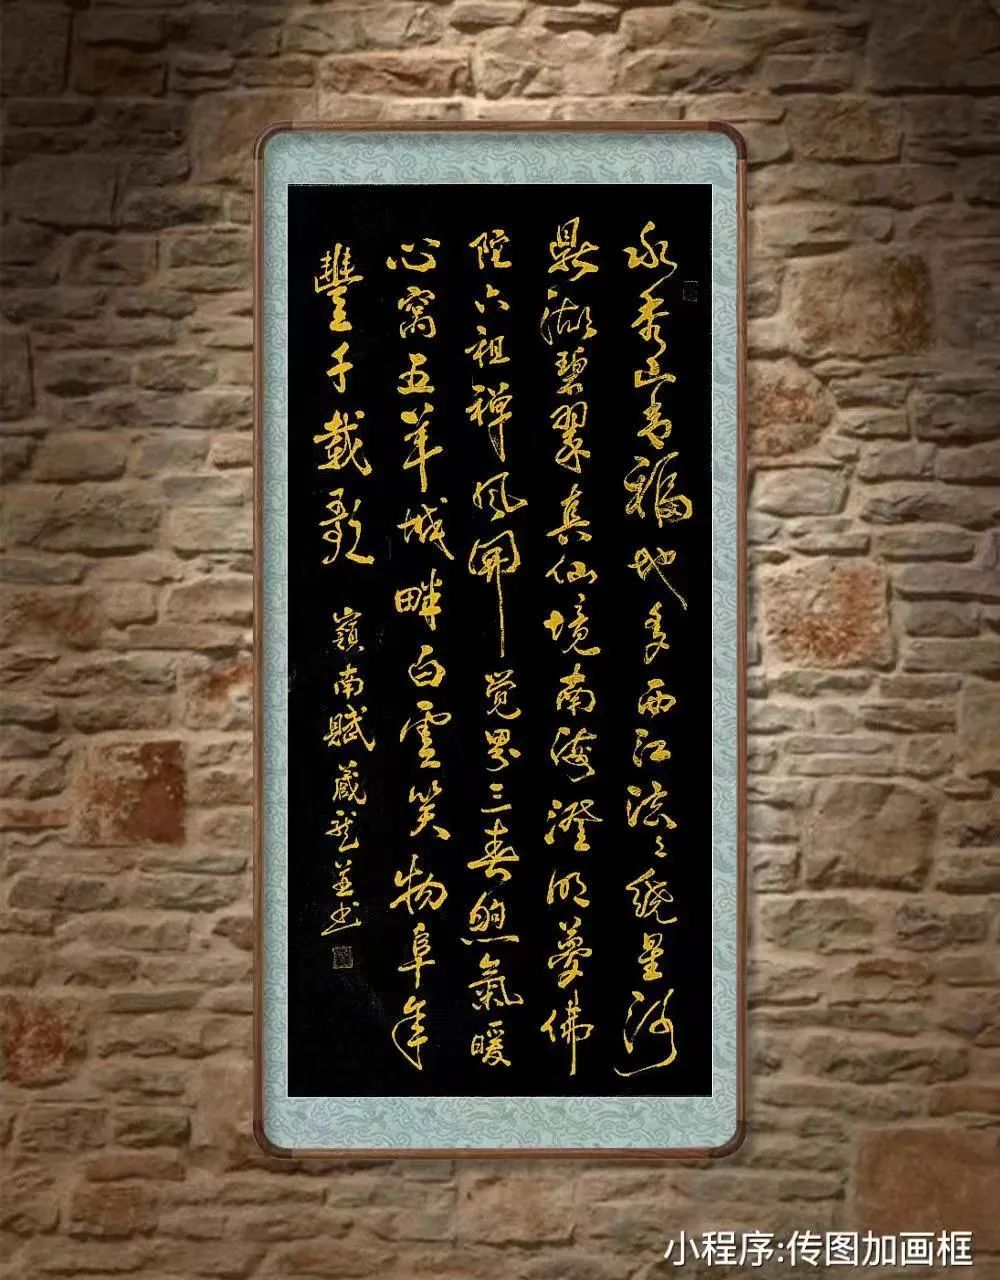 水秀山青福地多西江流々绕星河
鼎湖碧翠真仙境南海澄明夢佛
陀六祖禅风開觉界三春煦氣暖
心窝五羊城畔白雲笑物阜年
豐千載歌
嶺南賦 藏龙並书
小程序:传图加画框